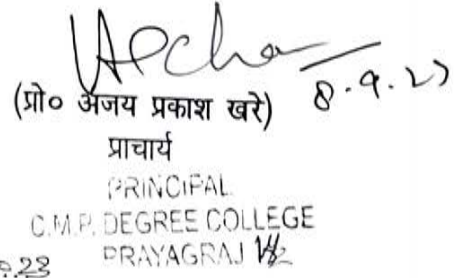 8.9.23
(प्रो० अजय प्रकाश खरे)
प्राचार्य
PRINCIPAL
C.M.P. DEGREE COLLEGE
PRAYAGRAJ